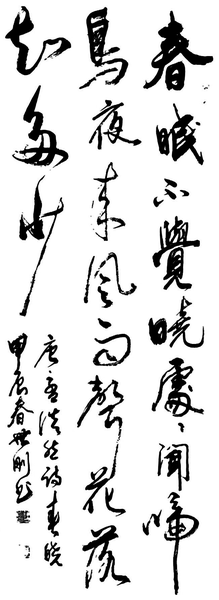 春眠不覺曉處々聞啼
鳥夜来風雨聲花落
知多少
唐孟浩然詩春曉
甲辰春